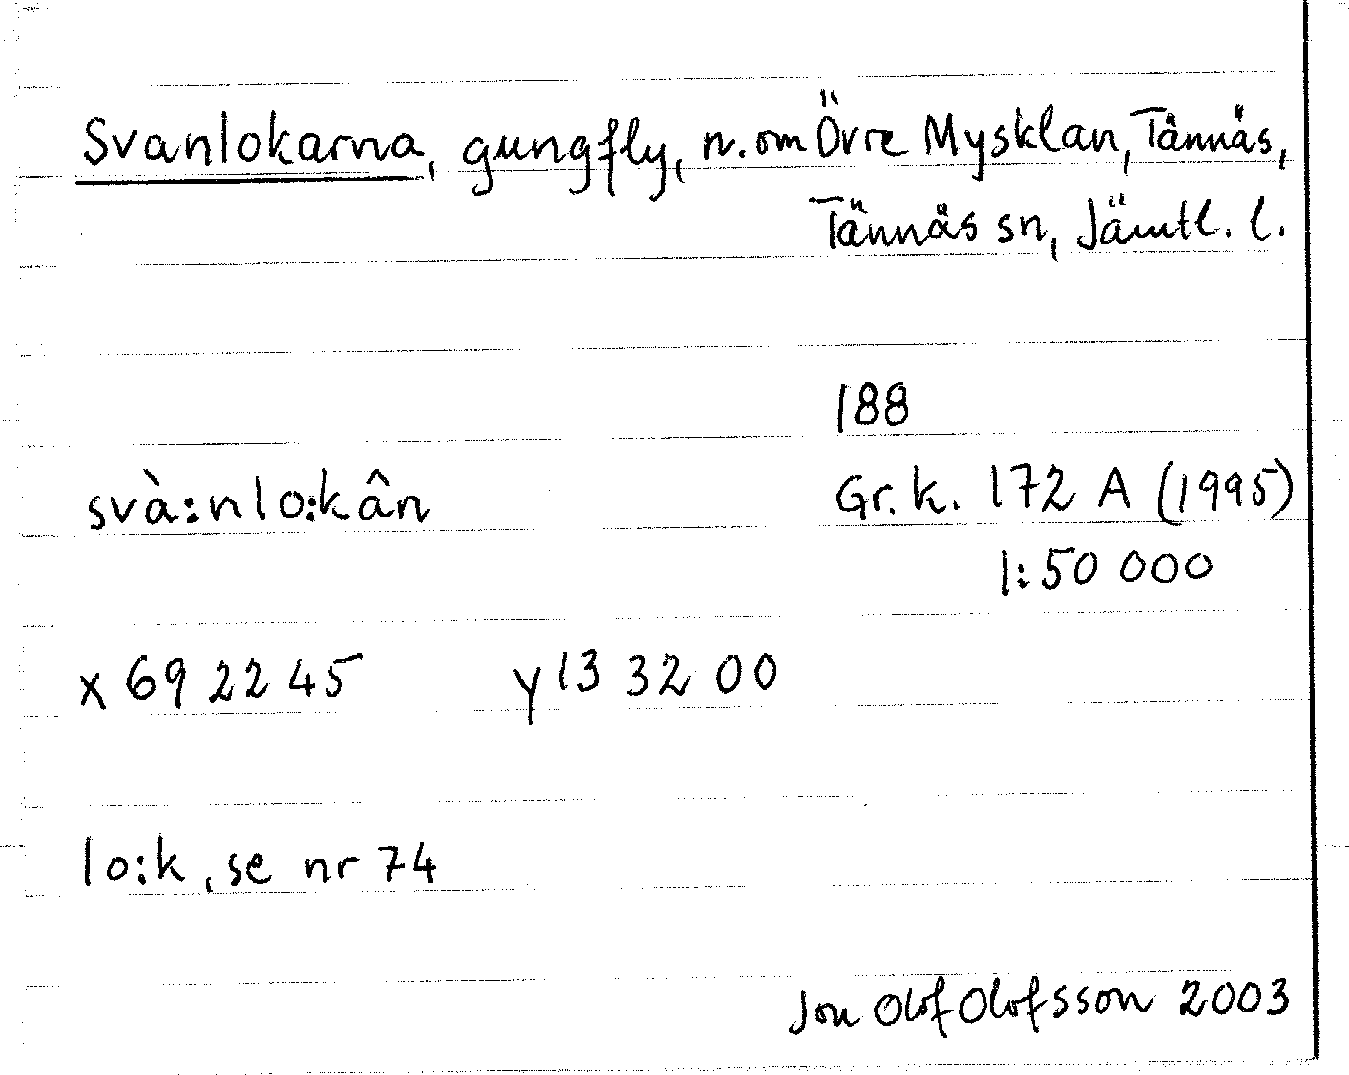 Svanlokarna, gungfly, n. om Övre Mysklan, Tännäs,
Tännäs sn, Jämtl. l.
188
svà:nlo:kân
Gr. k. 172 A (1995)
1:50 000
x 69 22 45 y 13 32 00
lo:k, se nr 74
Jon Olof Olofsson 2003